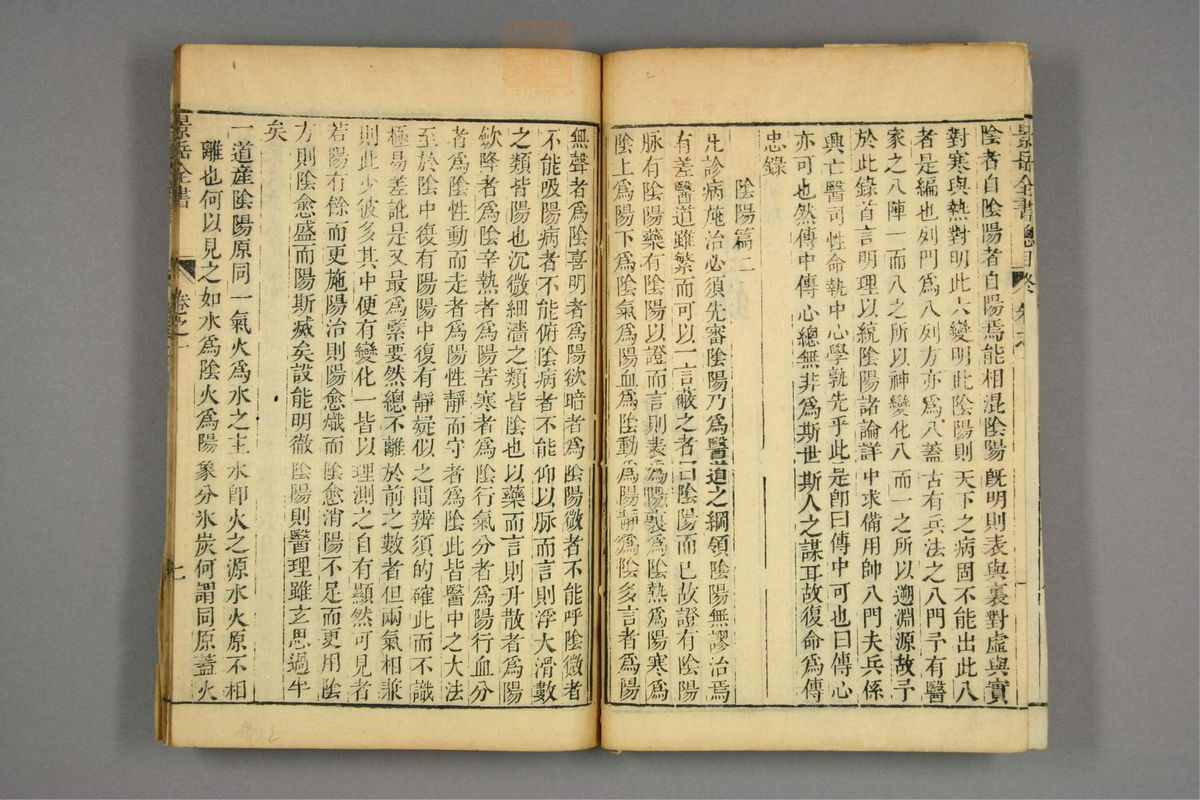 景岳全書
陰者自陰陽者自陽焉能相混陰陽既明則表與裏對虛與實
對寒與熱對明此六變明此陰陽則天下之病固不能出此八
者是編也列門爲八列方亦爲八蓋古有兵法之八門予有醫
家之八陣一而八之所以神變化八而一之所以遡淵源故予
於此錄首言明理以統陰陽諸論詳中求備用帥八門夫兵係
興亡醫司性命執中心學孰先乎此是卽曰傳中可也曰傳心
亦可也然傳中傳心總無非爲斯世斯人之謀耳故復命爲傳
忠錄
陰陽篇二
凡診病施治必須先審陰陽乃爲醫道之綱領陰陽無謬治焉
有差醫道雖繁而可以一言蔽之者曰陰陽而已故證有陰陽
脉有陰陽藥有陰陽以證而言則表爲陽裏爲陰熱爲陽寒爲
陰上爲陽下爲陰氣爲陽血爲陰動爲陽靜爲陰多言者爲陽
無聲者爲陰喜明者爲陽欲暗者爲陰陽微者不能呼陰微者
不能吸陽病者不能俯陰病者不能仰以脉而言則浮大滑數
之類皆陽也沉微細濇之類皆陰也以藥而言則升散者爲陽
斂降者爲陰辛熱者爲陽苦寒者爲陰行氣分者爲陽行血分
者爲陰性動而走者爲陽性靜而守者爲陰此皆醫中之大法
至於陰中復有陽陽中復有靜疑似之間辨須的確此而不識
極易差訛是又最爲緊要然總不離於前之數者但兩氣相兼
則此少彼多其中便有變化一皆以理測之自有顯然可見者
若陽有餘而更施陽治則陽愈熾而陰愈消陽不足而更用陰
方則陰愈盛而陽斯滅矣設能明徹陰陽則醫理雖玄思過半
矣
一道産陰陽原同一氣火爲水之主水卽火之源水火原不相
離也何以見之如水爲陰火爲陽象分氷炭何謂同原蓋火
景岳全書
卷之一
七